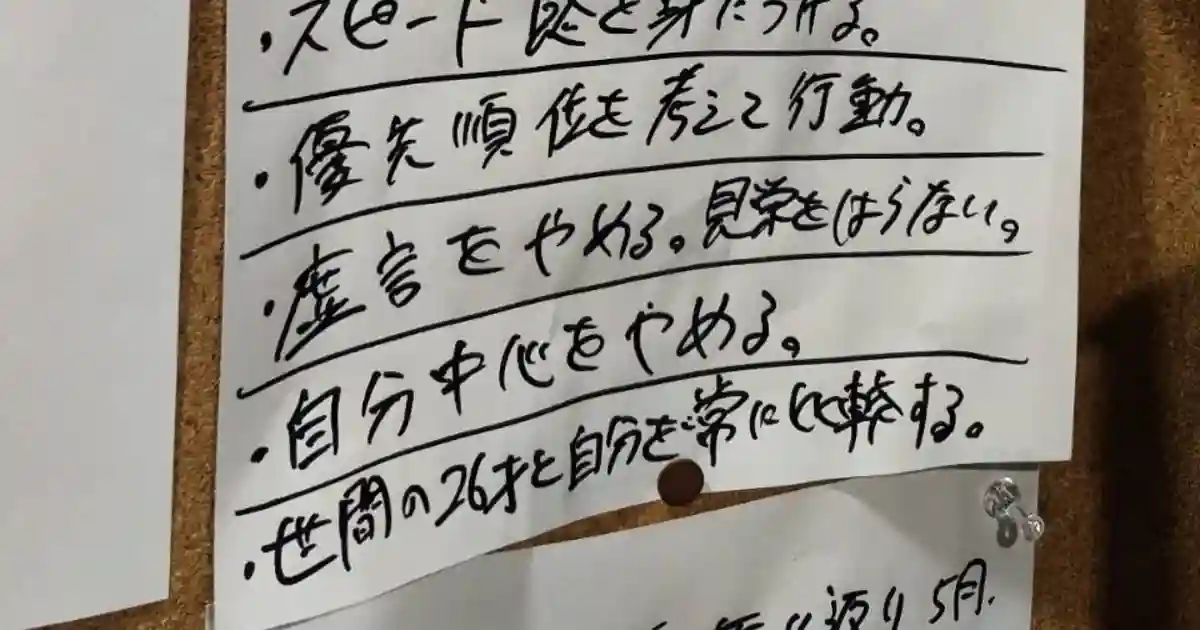 ・スピード感を身につける。
・優先順位を考えて行動。
・虚言をやめる。見栄をはらない。
・自分中心をやめる。
・世間の26才と自分を常に比較する。
返り5月.